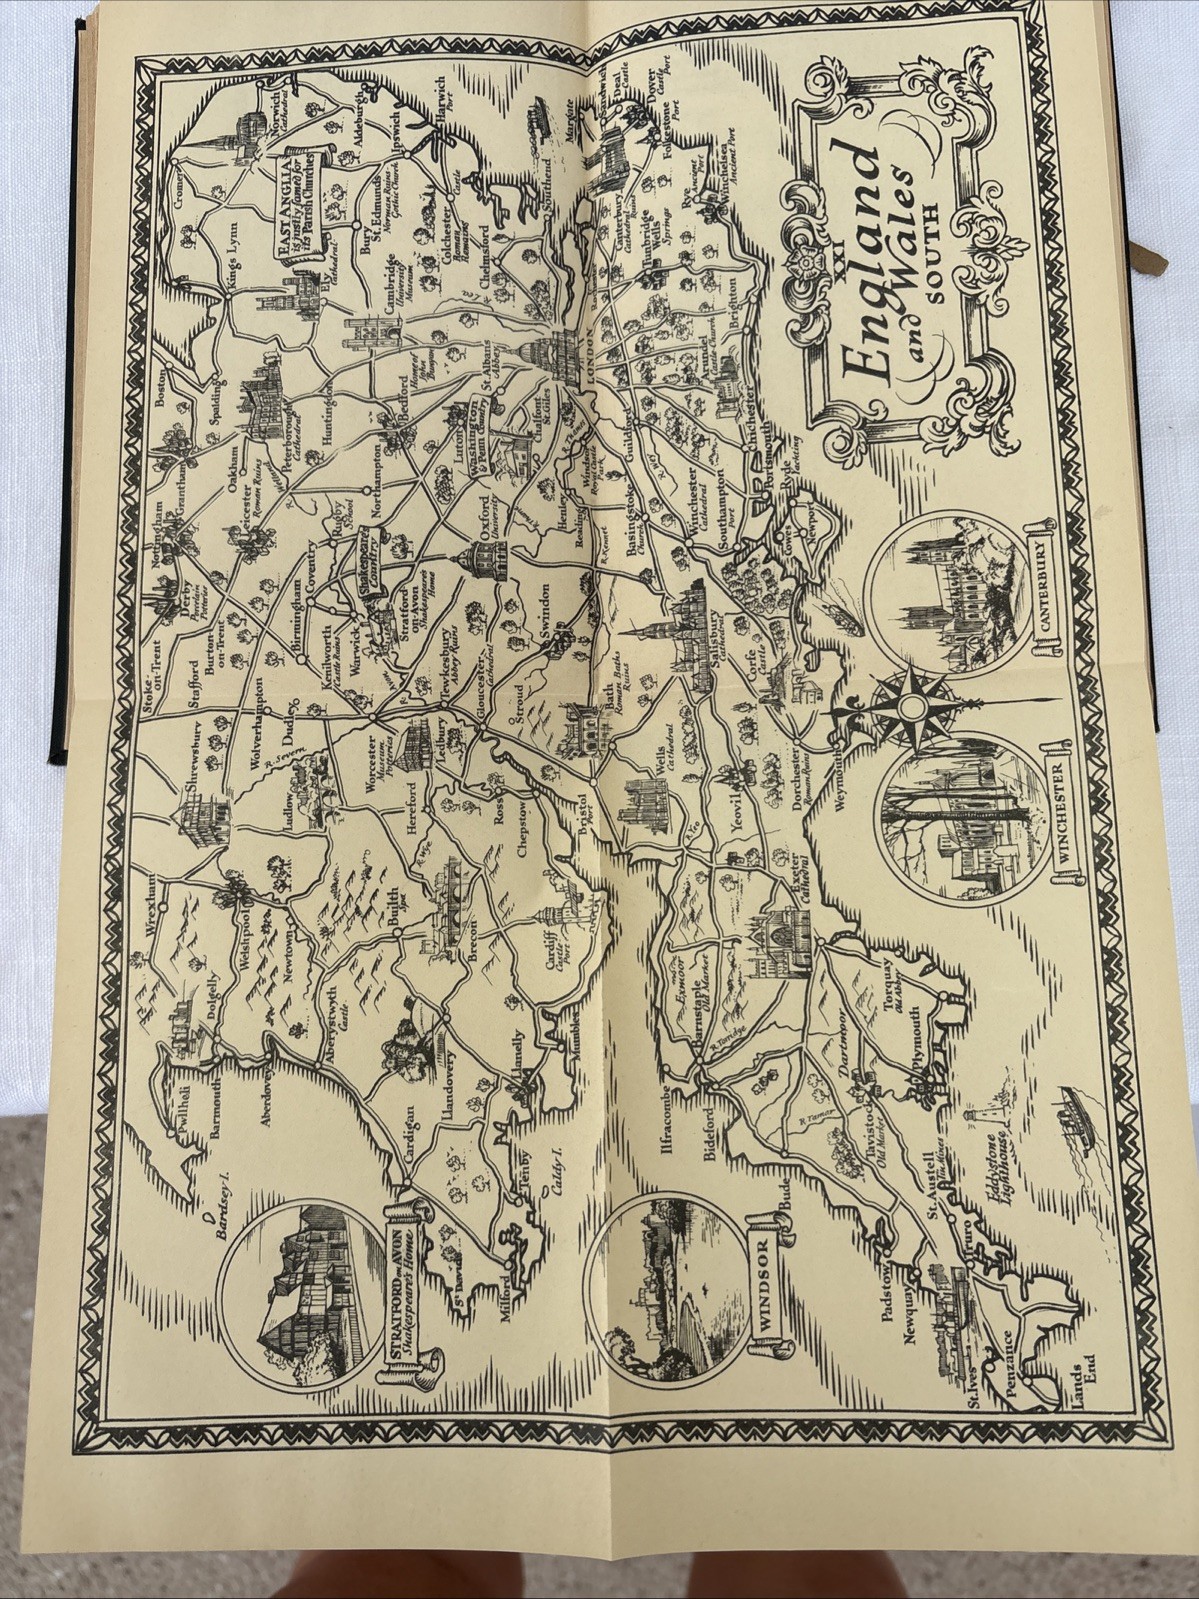 XXI
England
and Wales
SOUTH
CANTERBURY
WINCHESTER
WINDSOR
STRATFORD on AVON
Shakespeare's Home
EAST ANGLIA
is justly famed for
its Parish Churches
Cromer
Norwich
Cathedral
Aldeburgh
Ipswich
Harwich
Port
Kings Lynn
Ely
Cathedral
Bury
St. Edmunds
Norman Ruins
Gothic Church
Colchester
Castle
Roman
Remains
Chelmsford
Cambridge
University
Museum
Southend
Margate
Sandwich
Deal
Castle
Dover
Castle
Port
Folkestone
Port
Canterbury
Cathedral
Ruins
Rye
Ancient
Port
Winchelsea
Ancient Port
Tunbridge
Wells
Springs
Brighton
Arundel
Castle Church
Chichester
LONDON
St. Albans
Abbey
Boston
Spalding
Peterborough
Cathedral
Huntingdon
Bedford
Home of
John
Bunyan
Luton
Washington
& Penn Country
Chalfont
St. Giles
Windsor
Royal Castle
Park
Guildford
R. Wey
Portsmouth
Ryde
Yachting
Cowes
Newport
Grantham
Oakham
Leicester
Roman Ruins
Northampton
Rugby
School
Oxford
University
Henley
Reading
R. Kennet
Basingstoke
Church
Winchester
Cathedral
Southampton
Port
Nottingham
Derby
Porcelain
Potteries
Coventry
Shakespeare
Country
Stratford
on-Avon
Shakespeare's
Home
Birmingham
Kenilworth
Castle Ruins
Warwick
Swindon
Salisbury
Cathedral
Corfe
Castle
Stoke-
on-Trent
Stafford
Burton-
on-Trent
Wolverhampton
Dudley
Tewkesbury
Abbey Ruins
Gloucester
Cathedral
Stroud
Bath
Roman Baths
Ruins
Shrewsbury
Ludlow
Worcester
Museum
Potteries
Ledbury
Hereford
Ross
Chepstow
Bristol
Port
Wells
Cathedral
Yeovil
R. Yeo
Dorchester
Roman Ruins
Weymouth
R. Wye
Wrexham
Welshpool
Newtown
Builth
Spa
Brecon
Cardiff
Castle
Port
Exeter
Cathedral
Dolgelly
Aberystwyth
Castle
Llandovery
Llanelly
Mumbles
Exmoor
Barnstaple
Old Market
R. Torridge
Dartmoor
Torquay
Old Abbey
Plymouth
Pwllheli
Barmouth
Aberdovey
Cardigan
Tenby
Caldy I.
Bardsey I.
St. Davids
Milford
Ilfracombe
Bideford
Bude
R. Tamar
Tavistock
Old Market
St. Austell
Tin Mines
Eddystone
Lighthouse
Padstow
Newquay
Truro
St. Ives
Penzance
Lands
End